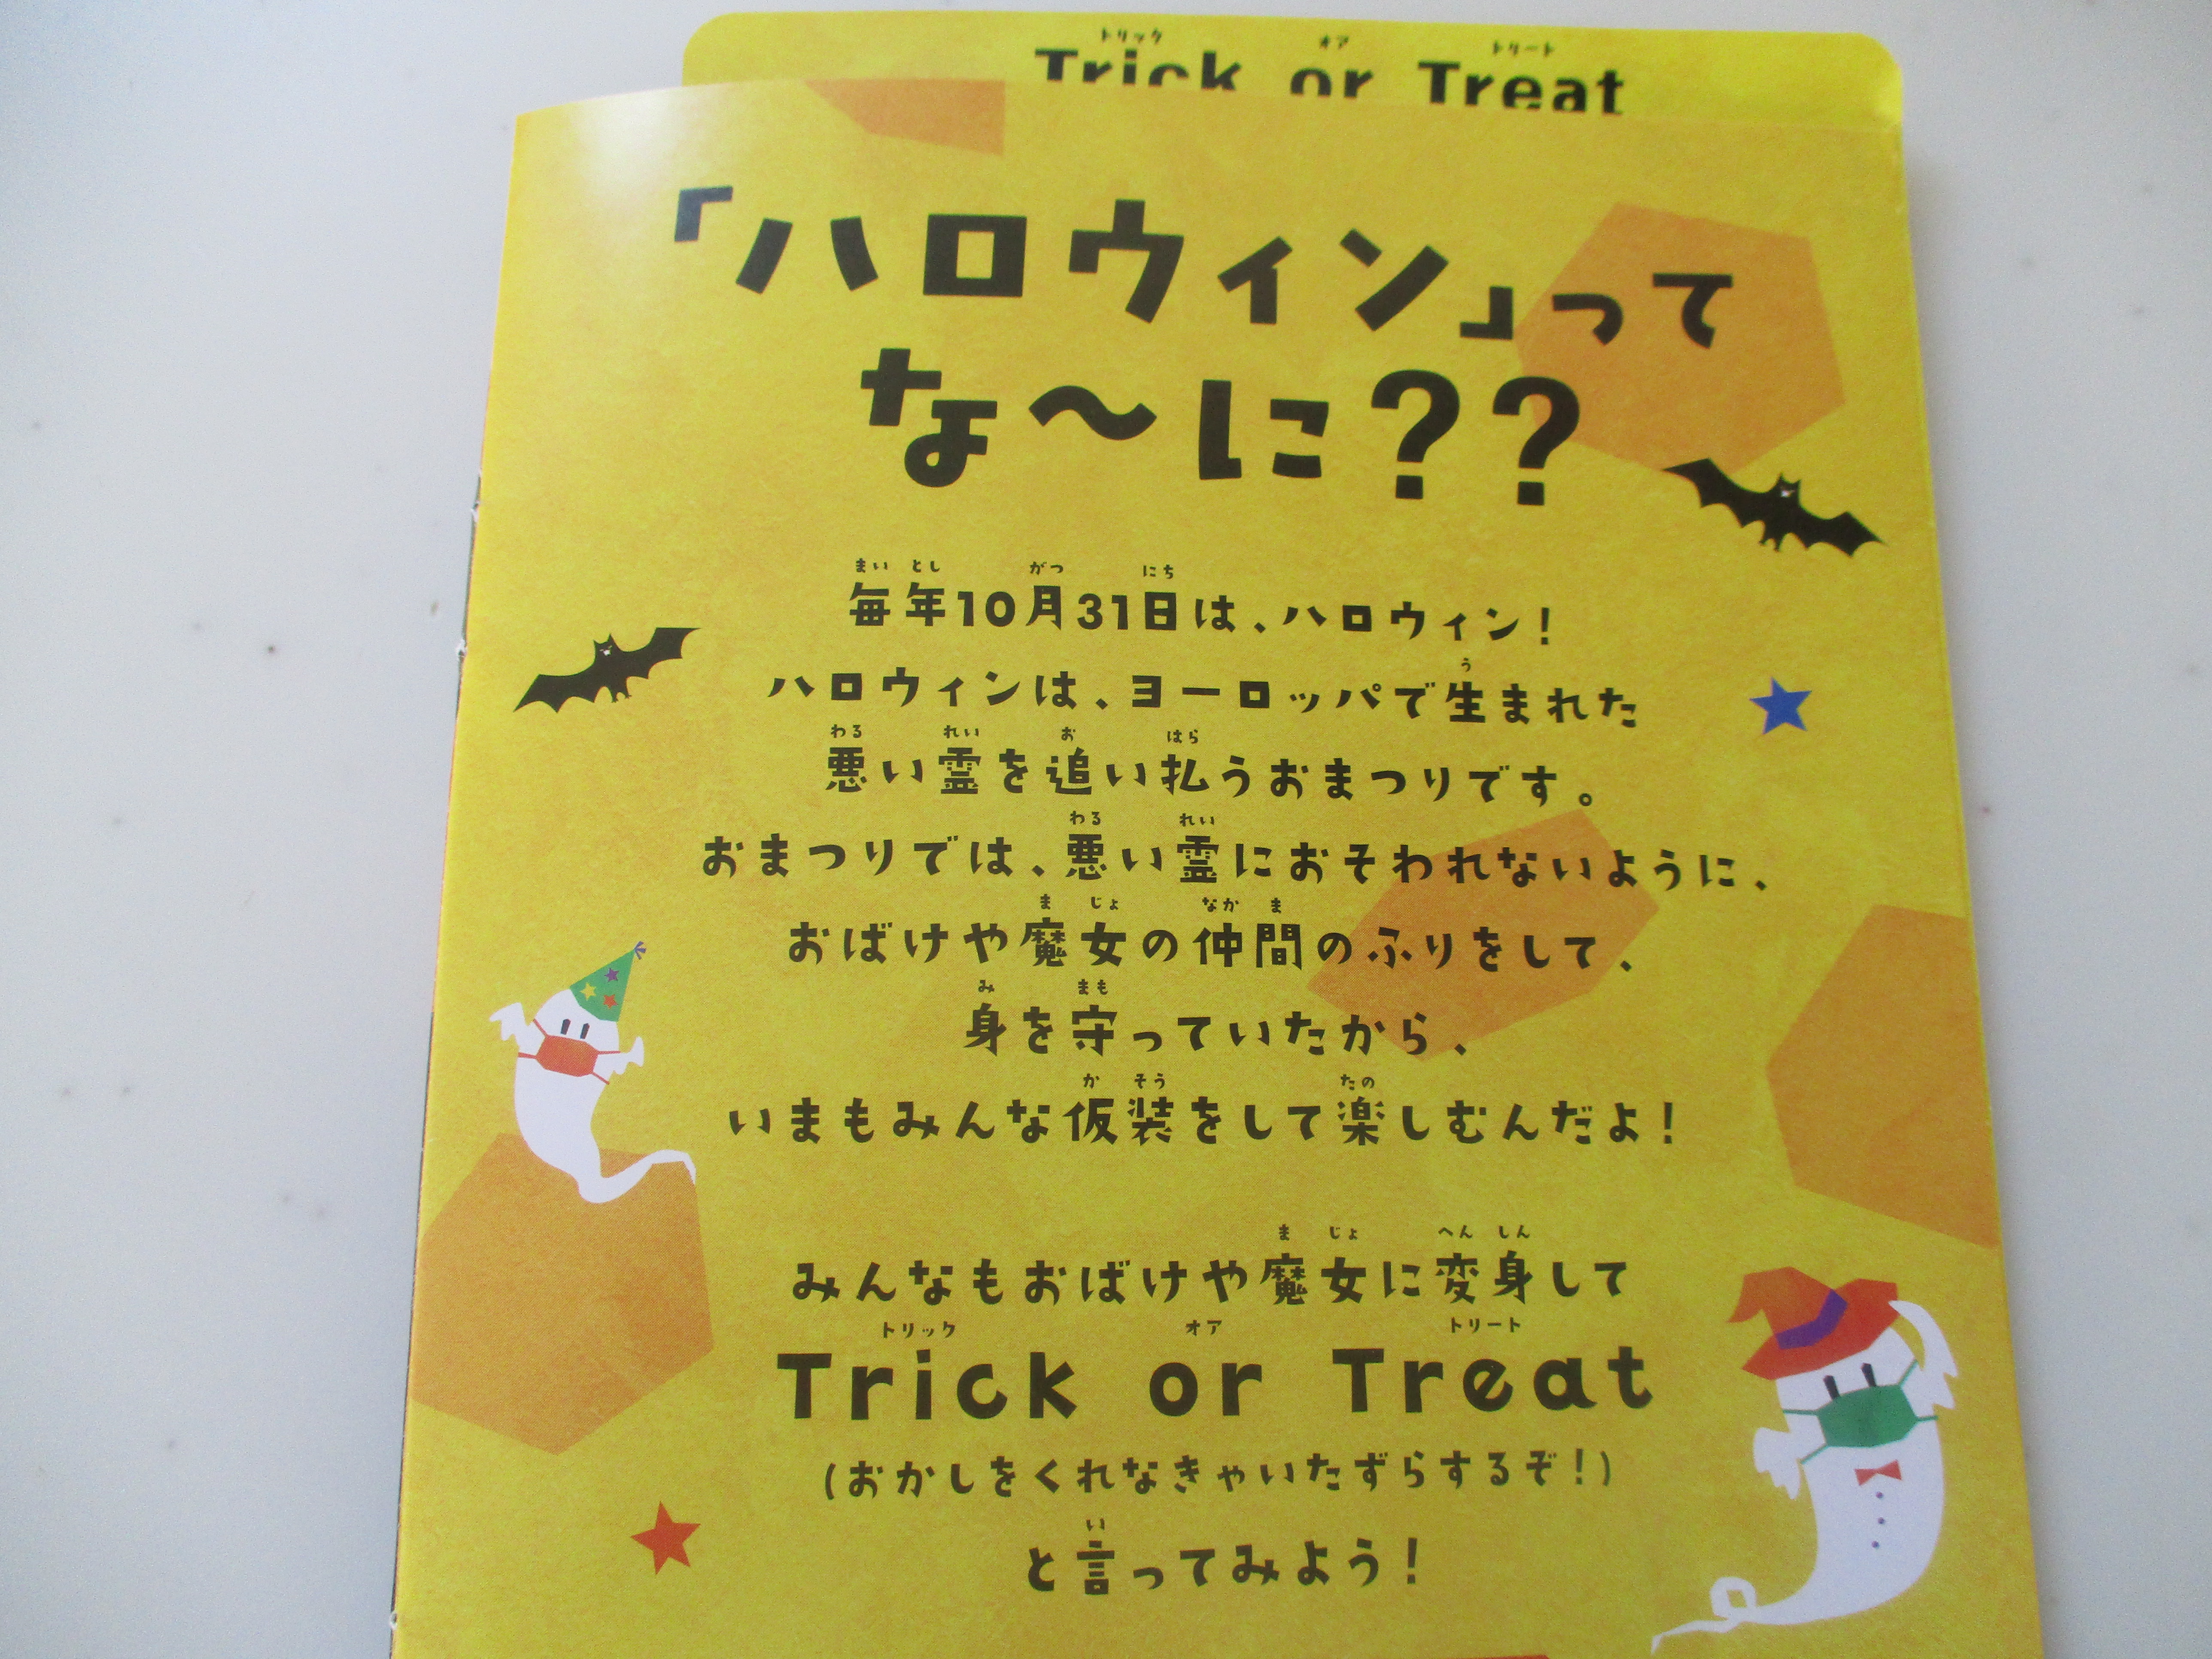 トリック オア トリート
Trick or Treat
「ハロウィン」って
な〜に??
まい とし がつ にち
毎年10月31日は、ハロウィン!
う
ハロウィンは、ヨーロッパで生まれた
わる れい お はら
悪い霊を追い払うおまつりです。
わる れい
おまつりでは、悪い霊におそわれないように、
ま じょ なか ま
おばけや魔女の仲間のふりをして、
み まも
身を守っていたから、
か そう たの
いまもみんな仮装をして楽しむんだよ!
ま じょ へん しん
みんなもおばけや魔女に変身して
トリック オア トリート
Trick or Treat
(おかしをくれなきゃいたずらするぞ!)
い
と言ってみよう!